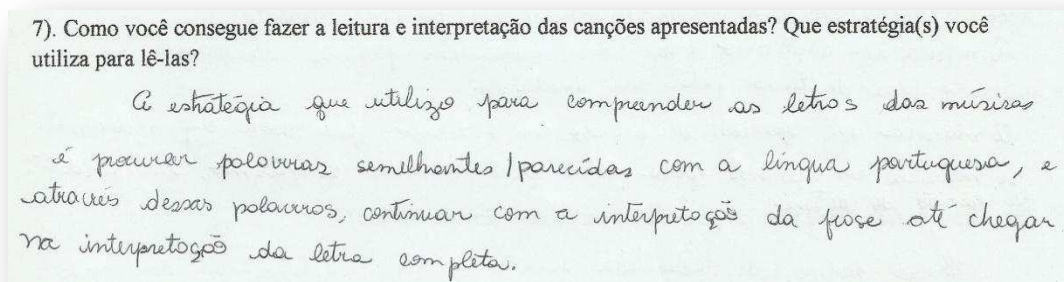 7). Como você consegue fazer a leitura e interpretação das canções apresentadas? Que estratégia(s) você
utiliza para lê-las?
A estratégia que utilizo para compreender as letras das músicas
é procurar palavras semelhantes / parecidas com a língua portuguesa, e
através dessas palavras, continuar com a interpretação da frase até chegar
na interpretação da letra completa.